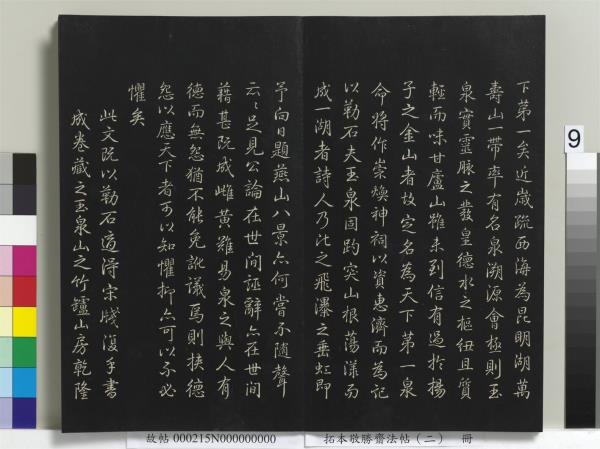 下第一矣近歲疏西海為昆明湖萬
壽山一帶率有名泉溯源會極則玉
泉實靈脉之發皇德水之樞紐且質
輕而味甘廬山雖未到信有過於揚
子之金山者故定名為天下第一泉
命將作崇煥神祠以資惠濟而為記
以勒石夫玉泉固趵突山根蕩漾而
成一湖者詩人乃比之飛瀑之垂虹即
予向日題燕山八景亦何嘗不隨聲
云〻足見公論在世間誣辭亦在世間
藉甚既成雌黃難易泉之與人有
德而無怨猶不能免訛議焉則挾德
怨以應天下者可以知懼抑亦可以不必
懼矣
此文既以勒石適得宋牋復手書
成卷藏之玉泉山之竹罏山房乾隆
9
故帖 000215N000000000 拓本敬勝齋法帖（二） 冊